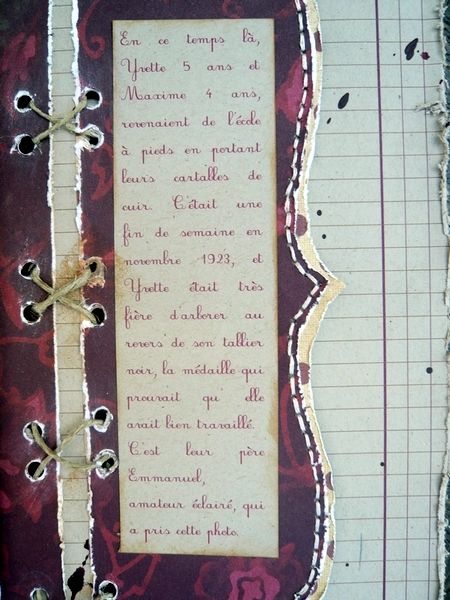 En ce temps là,
Yvette 5 ans et
Maxime 4 ans,
revenaient de l'école
à pieds en portant
leurs cartalles de
cuir. C'était une
fin de semaine en
novembre 1923, et
Yvette était très
fière d'arborer au
revers de son tallier
noir, la médaille qui
prouvait qu elle
avait bien travaillé.
C'est leur père
Emmanuel,
amateur éclairé, qui
a pris cette photo.